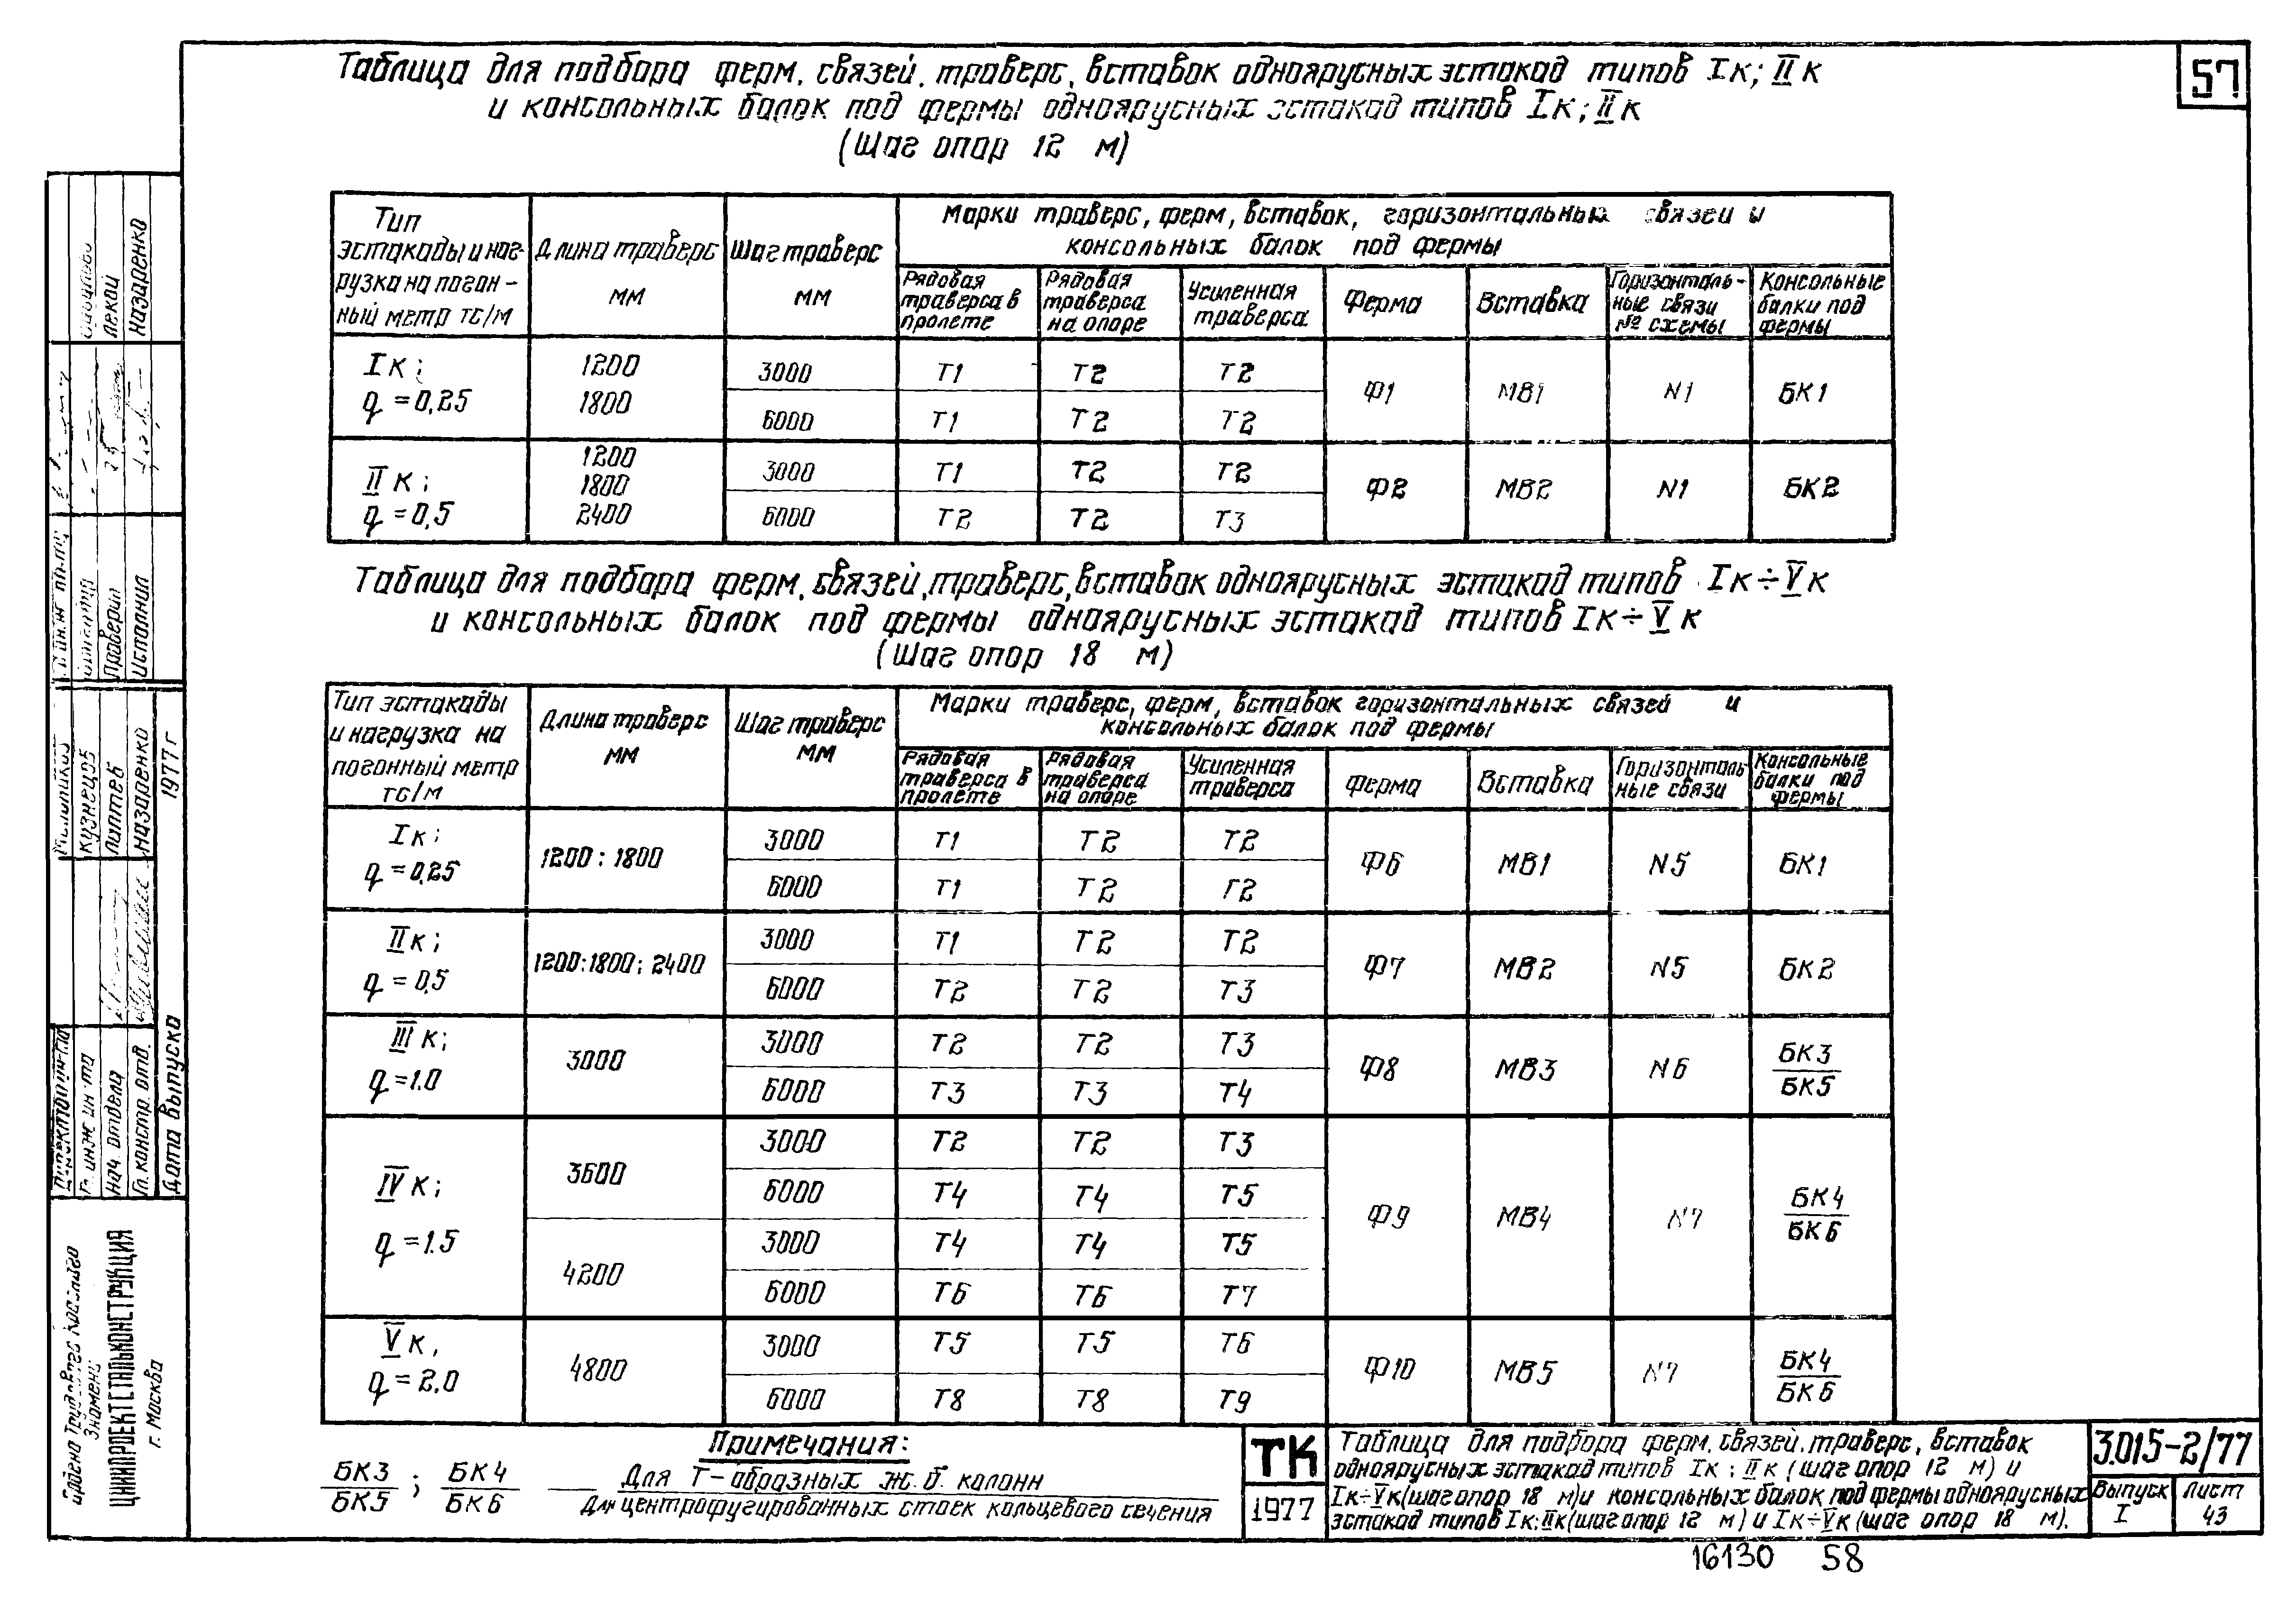 57
Таблица для подбора ферм, связей, траверс, вставок одноярусных эстакад типов Iк; IIк
и консольных балок под фермы одноярусных эстакад типов Iк; IIк
(Шаг опор 12 м)
Тип эстакады и нагрузка на погонный метр тс/м
Длина траверс мм
Шаг траверс мм
Марки траверс, ферм, вставок, горизонтальных связей и консольных балок под фермы
Рядовая траверса в пролете
Рядовая траверса на опоре
Усиленная траверса
Ферма
Вставка
Горизонтальные связи № схемы
Консольные балки под фермы
Iк; q = 0,25 1200 1800 3000 Т1 Т2 Т2 Ф1 МВ1 N1 БК1
6000 Т1 Т2 Т2
IIк; q = 0,5 1200 1800 2400 3000 Т1 Т2 Т2 Ф2 МВ2 N1 БК2
6000 Т2 Т2 Т3
Таблица для подбора ферм, связей, траверс, вставок одноярусных эстакад типов Iк÷Vк
и консольных балок под фермы одноярусных эстакад типов Iк÷Vк
(Шаг опор 18 м)
Тип эстакады и нагрузка на погонный метр тс/м
Длина траверс мм
Шаг траверс мм
Марки траверс, ферм, вставок горизонтальных связей и консольных балок под фермы
Рядовая траверса в пролете
Рядовая траверса на опоре
Усиленная траверса
Ферма
Вставка
Горизонтальные связи
Консольные балки под фермы
Iк; q = 0,25 1200; 1800 3000 Т1 Т2 Т2 Ф6 МВ1 N5 БК1
6000 Т1 Т2 Т2
IIк; q = 0,5 1200; 1800; 2400 3000 Т1 Т2 Т2 Ф7 МВ2 N5 БК2
6000 Т2 Т2 Т3
IIIк; q = 1.0 3000 3000 Т2 Т2 Т3 Ф8 МВ3 N6 БК3/БК5
6000 Т3 Т3 Т4
IVк; q = 1.5 3600 3000 Т2 Т2 Т3 Ф9 МВ4 N7 БК4/БК6
6000 Т4 Т4 Т5
4200 3000 Т4 Т4 Т5
6000 Т6 Т6 Т7
Vк, q = 2.0 4800 3000 Т5 Т5 Т6 Ф10 МВ5 N7 БК4/БК6
6000 Т8 Т8 Т9
Примечания:
БК3/БК5 ; БК4/БК6 — Для Т-образных ж.б. колонн
Для центрофугированных стоек кольцевого сечения
ТК
1977
Таблица для подбора ферм, связей, траверс, вставок
одноярусных эстакад типов Iк; IIк (шаг опор 12 м) и
Iк÷Vк (шаг опор 18 м) и консольных балок под фермы одноярусных
эстакад типов Iк; IIк (шаг опор 12 м) и Iк÷Vк (шаг опор 18 м).
3.015-2/77
Выпуск I
Лист 43
16130 58
Лекац
Назаренко
Проверил
Исполнил
Кузнецов
Лаптев
Назаренко
1977 г
Гл. инж. ин-та
Нач. отдела
Гл. констр. отд.
Дата выпуска
Ордена Трудового Красного Знамени
ЦНИИПРОЕКТСТАЛЬКОНСТРУКЦИЯ
г. Москва